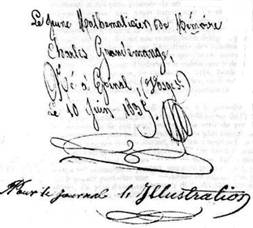 Le jeune Mathématicien de Mémoire
Charles Grandemange,
Né à Epinal, (Vosges)
Le 10 Juin 1835.
Pour le journal le Illustration